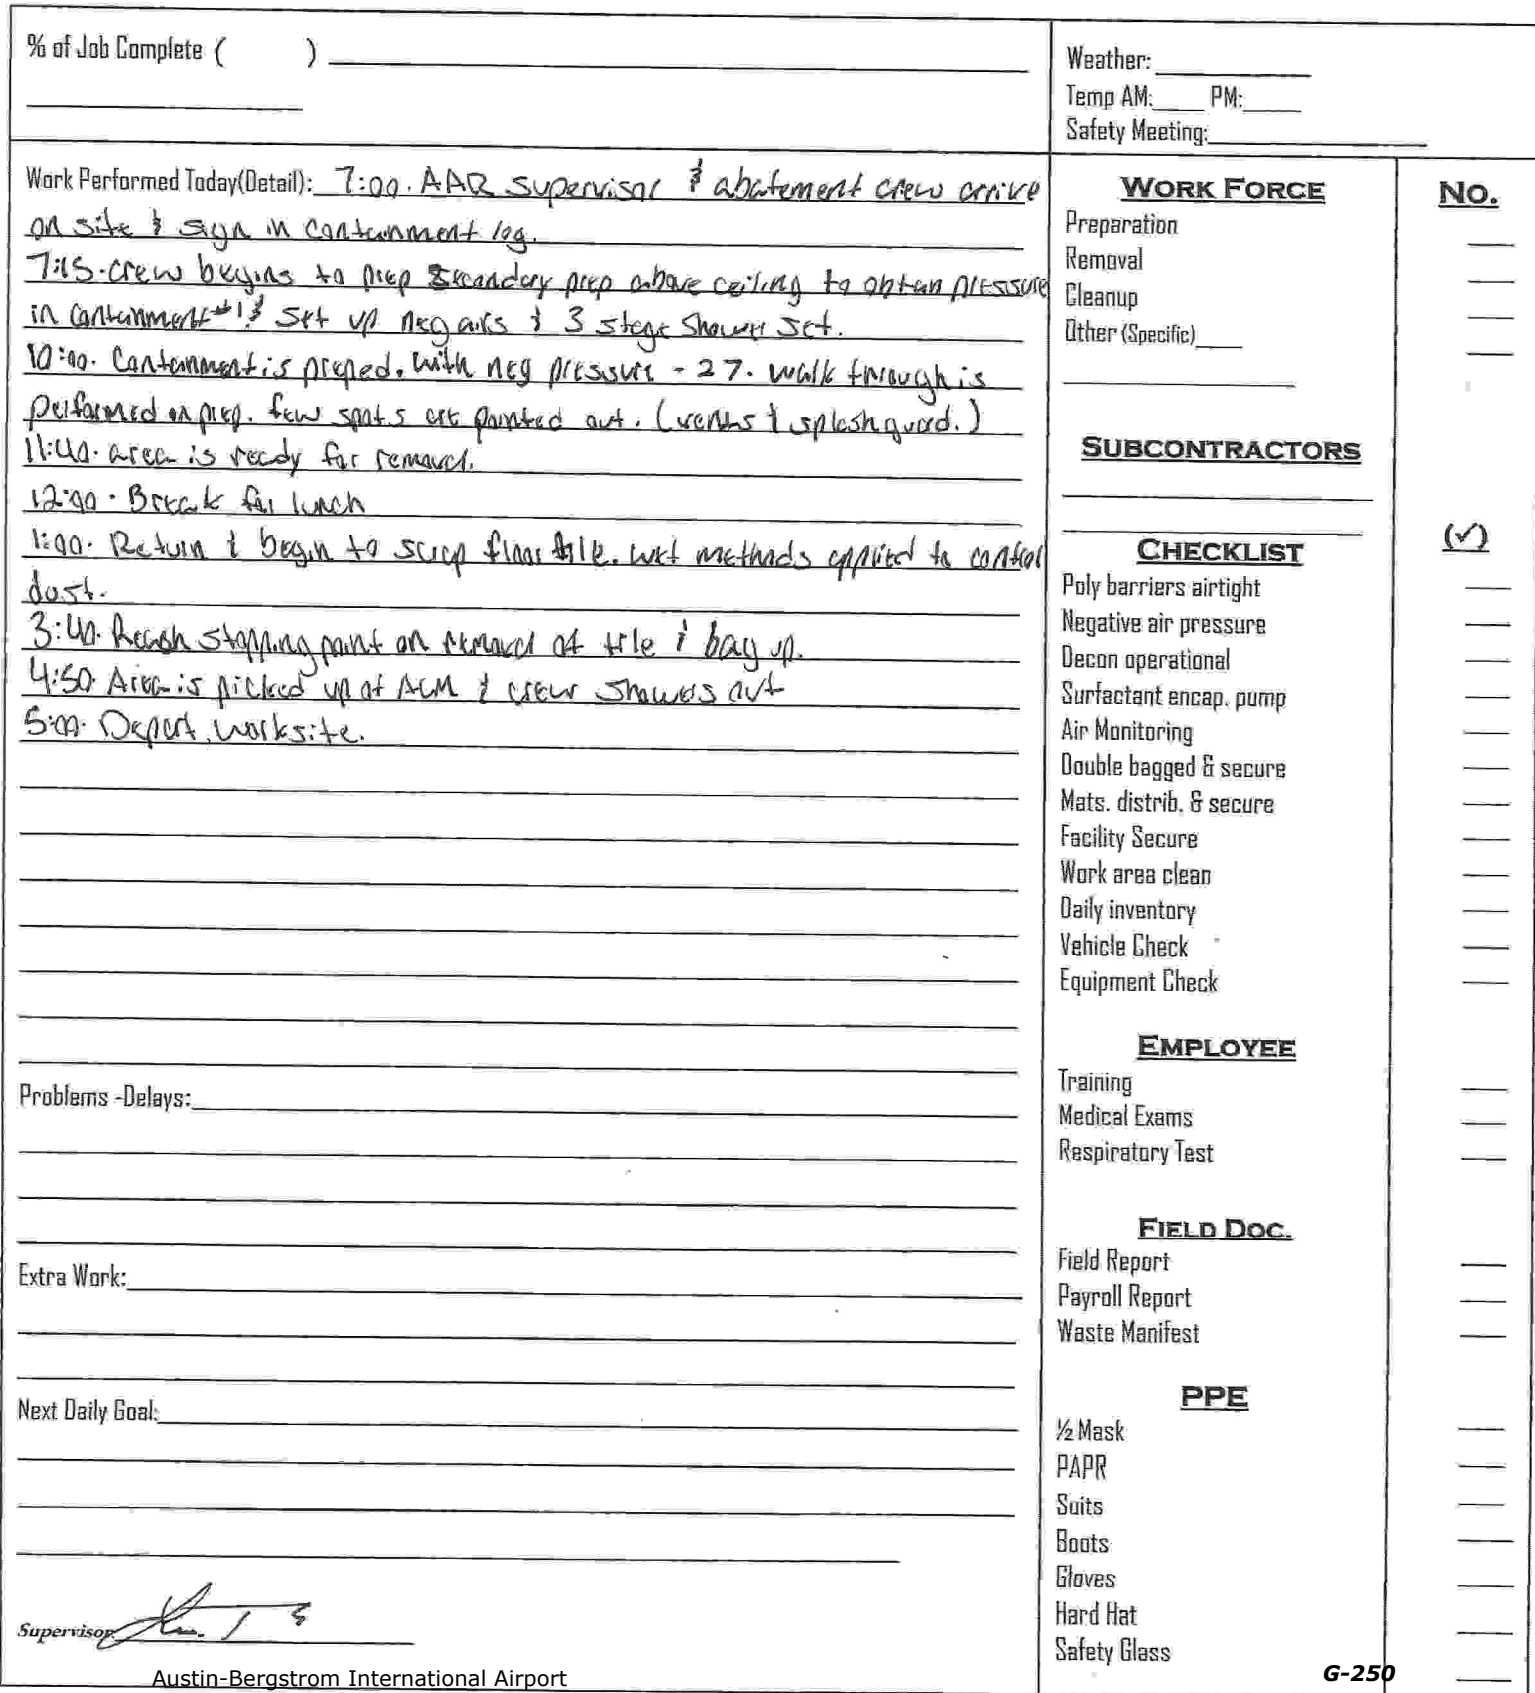 % of Job Complete ( )
Weather:
Temp AM: PM:
Safety Meeting:
Work Performed Today(Detail): 7:00. AAR supervisor & abatement crew arrive
on site & sign in containment log.
7:15. crew begins to prep secondary prep above ceiling to obtan pressure
in containment #1 & set up neg airs & 3 stage shower set.
10:00. Containment is preped. with neg pressure - 27. walk through is
performed on prep. few spots are pointed out. (vents & splashguard.)
11:40. area is ready for removal.
12:00. Break for lunch
1:00. Return & begin to scrap floor tile. wet methods applied to control
dust.
3:40. Reach stopping point on removal of tile & bag up.
4:50. Area is picked up of ACM & crew showers out
5:00. Depart worksite.
Problems -Delays:
Extra Work:
Next Daily Goal:
Supervisor:
WORK FORCE NO.
Preparation
Removal
Cleanup
Other (Specific)
SUBCONTRACTORS
CHECKLIST (✓)
Poly barriers airtight
Negative air pressure
Decon operational
Surfactant encap. pump
Air Monitoring
Double bagged & secure
Mats. distrib. & secure
Facility Secure
Work area clean
Daily inventory
Vehicle Check
Equipment Check
EMPLOYEE
Training
Medical Exams
Respiratory Test
FIELD DOC.
Field Report
Payroll Report
Waste Manifest
PPE
½ Mask
PAPR
Suits
Boots
Gloves
Hard Hat
Safety Glass
Austin-Bergstrom International Airport
G-250